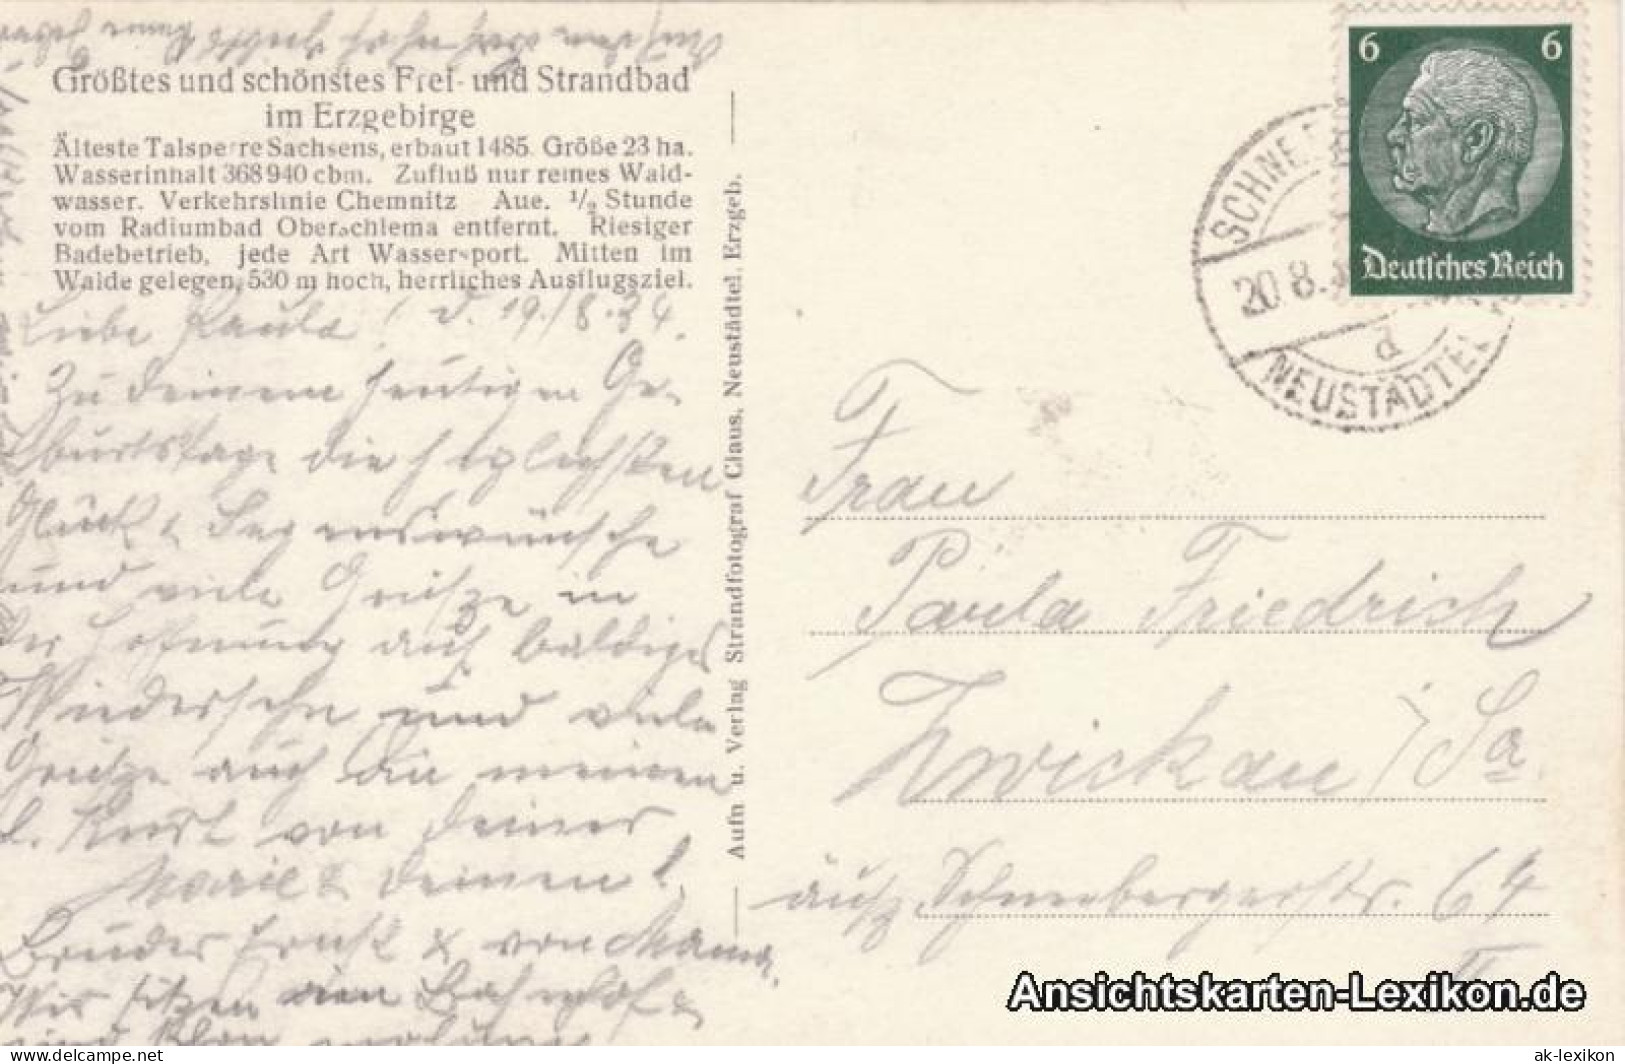 Größtes und schönstes Frei- und Strandbad
im Erzgebirge
Älteste Talsperre Sachsens, erbaut 1485. Größe 23 ha.
Wasserinhalt 368940 cbm. Zufluß nur reines Wald-
wasser. Verkehrslinie Chemnitz Aue. 1/2 Stunde
vom Radiumbad Oberschlema entfernt. Riesiger
Badebetrieb, jede Art Wassersport. Mitten im
Walde gelegen, 530 m hoch, herrliches Ausflugsziel.
Liebe Paula! d. 19./8.34.
Zu Deinem heutigen Ge-
burtstage die herzlichsten
Glück & Segenswünsche
und viele Grüße in
der Hoffnung auf baldiges
Wiedersehn und viele
Grüße auch an die meinen
l. Kurt von Deiner
Marie & Deinen l.
Bruder Ernst & von Mama.
Wir sitzen am Bahnhof &
und
Aufn u. Verlag Strandfotograf Claus, Neustädtel, Erzgeb.
6 6
Deutsches Reich
SCHNE
20 8.
d
NEUSTÄDTEL
Frau
Paula Friedrich
Zwickau / Sa.
Schneebergerstr. 64
II
Ansichtskarten-Lexikon.de
ak-lexikon